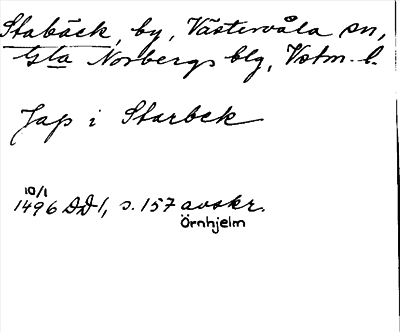 Stabäck, by, Västervåla sn,
Gla Norbergs blg, Vstm. l.
Jap i Starbek
10/1
1496 DD1, s. 157 avskr.
Örnhjelm